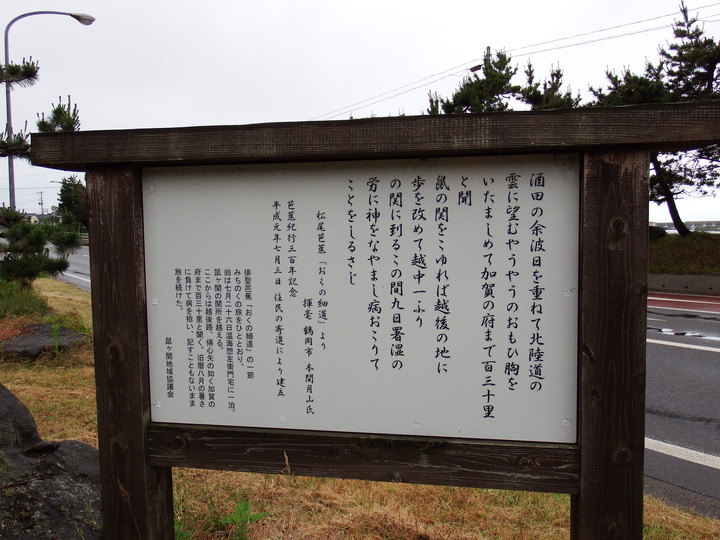 酒田の余波日を重ねて北陸道の
雲に望むやうやうのおもひ胸を
いたましめて加賀の府まで百三十里
と聞
鼠の関をこゆれば越後の地に
歩を改めて越中一ふり
の関に到るこの間九日署湿の
労に神をなやまし病おこりて
ことをしるさじ
松尾芭蕉「おくの細道」より
揮毫 鶴岡市 本間月山氏
芭蕉紀行三百年記念
平成元年七月三日 住民の寄進により建立
俳聖芭蕉「おくの細道」の一節
みちのくの旅をひととおり。
翁は七月二十六日温海惣左衛門宅に一泊。
鼠ヶ関の関所を越える。
ここからは越後路、帰心矢の如く加賀の
府まで百三十里と聞く。旧暦八月の暑さ
に負けて病を拾い、記すこともないまま
旅を続けた。
鼠ヶ関地域協議会